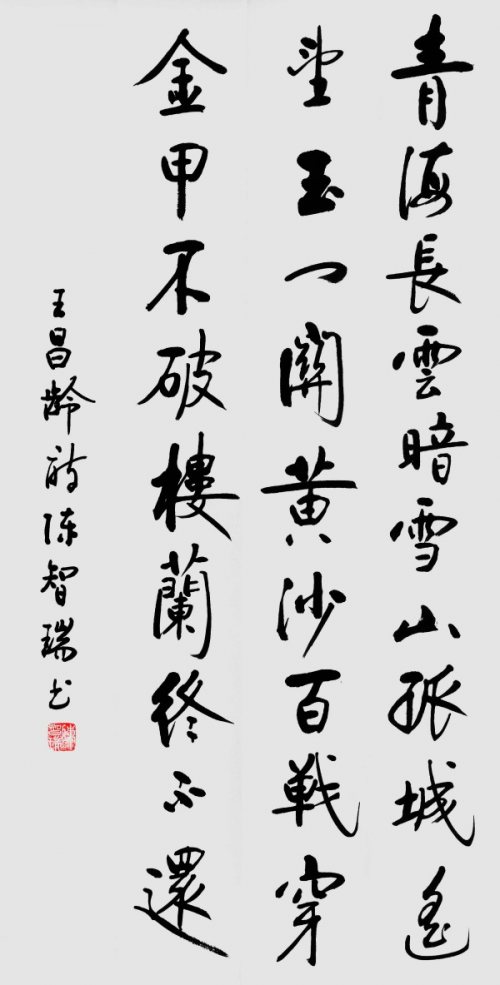 青海長雲暗雪山孤城遙
望玉门關黃沙百戰穿
金甲不破樓蘭終不還
王昌齡诗陈智瑞书